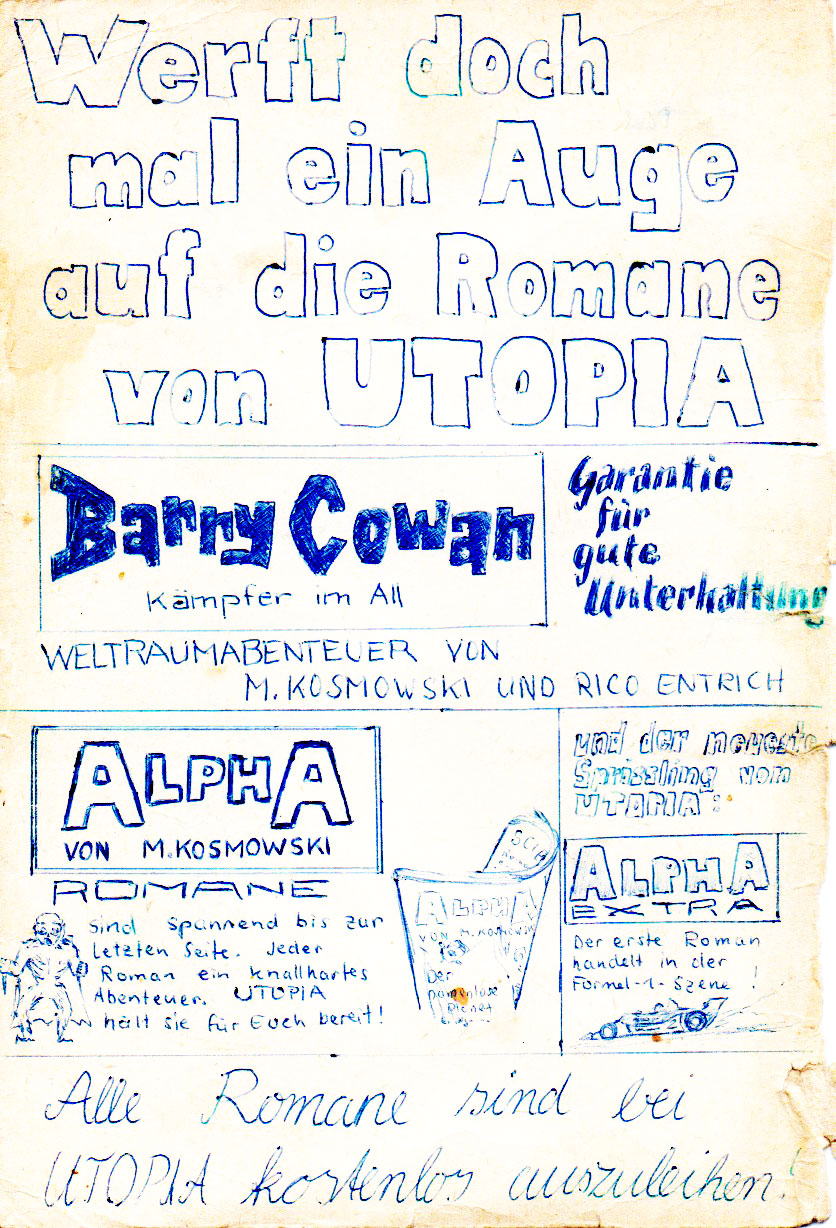 Werft doch
mal ein Auge
auf die Romane
von UTOPIA
Barry Cowan
Kämpfer im All
Garantie
für
gute
Unterhaltung
WELTRAUMABENTEUER VON
M. KOSMOWSKI UND RICO ENTRICH
ALPHA
VON M. KOSMOWSKI
ROMANE
sind spannend bis zur
letzten Seite. Jeder
Roman ein knallhartes
Abenteuer. UTOPIA
hält sie für Euch bereit!
ALPHA
VON M. KOSMOWSKI
Der
Planet
und der neueste
Sprössling von
UTOPIA:
ALPHA
EXTRA
Der erste Roman
handelt in der
Formel-1-Szene!
Alle Romane sind bei
UTOPIA kostenlos auszuleihen!